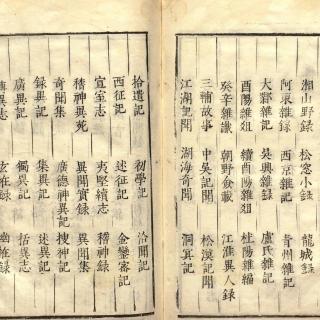 湘山野錄 松窓小錄 龍城錄
東雜錄 西京雜記 青州雜記
大雜記 吳興雜錄 盧氏雜記
酉陽雜俎 續酉陽雜俎 杜陽雜編
癸辛雜識 朝野僉載 江淮異人錄
三補故事 中吳記聞 松漠記聞
江湖記聞 湖海奇聞 洞冥記
拾遺記 初學記 洽聞記
西征記 述征記 金鑾密記
宣室志 夷堅續志 稽神錄
稽神異苑 異聞實錄 異聞集
奇聞集 廣德神異記 搜神記
錄異記 集異記 述異記
廣異記 獨異記 括異志
異志 玄怪錄 幽怪錄